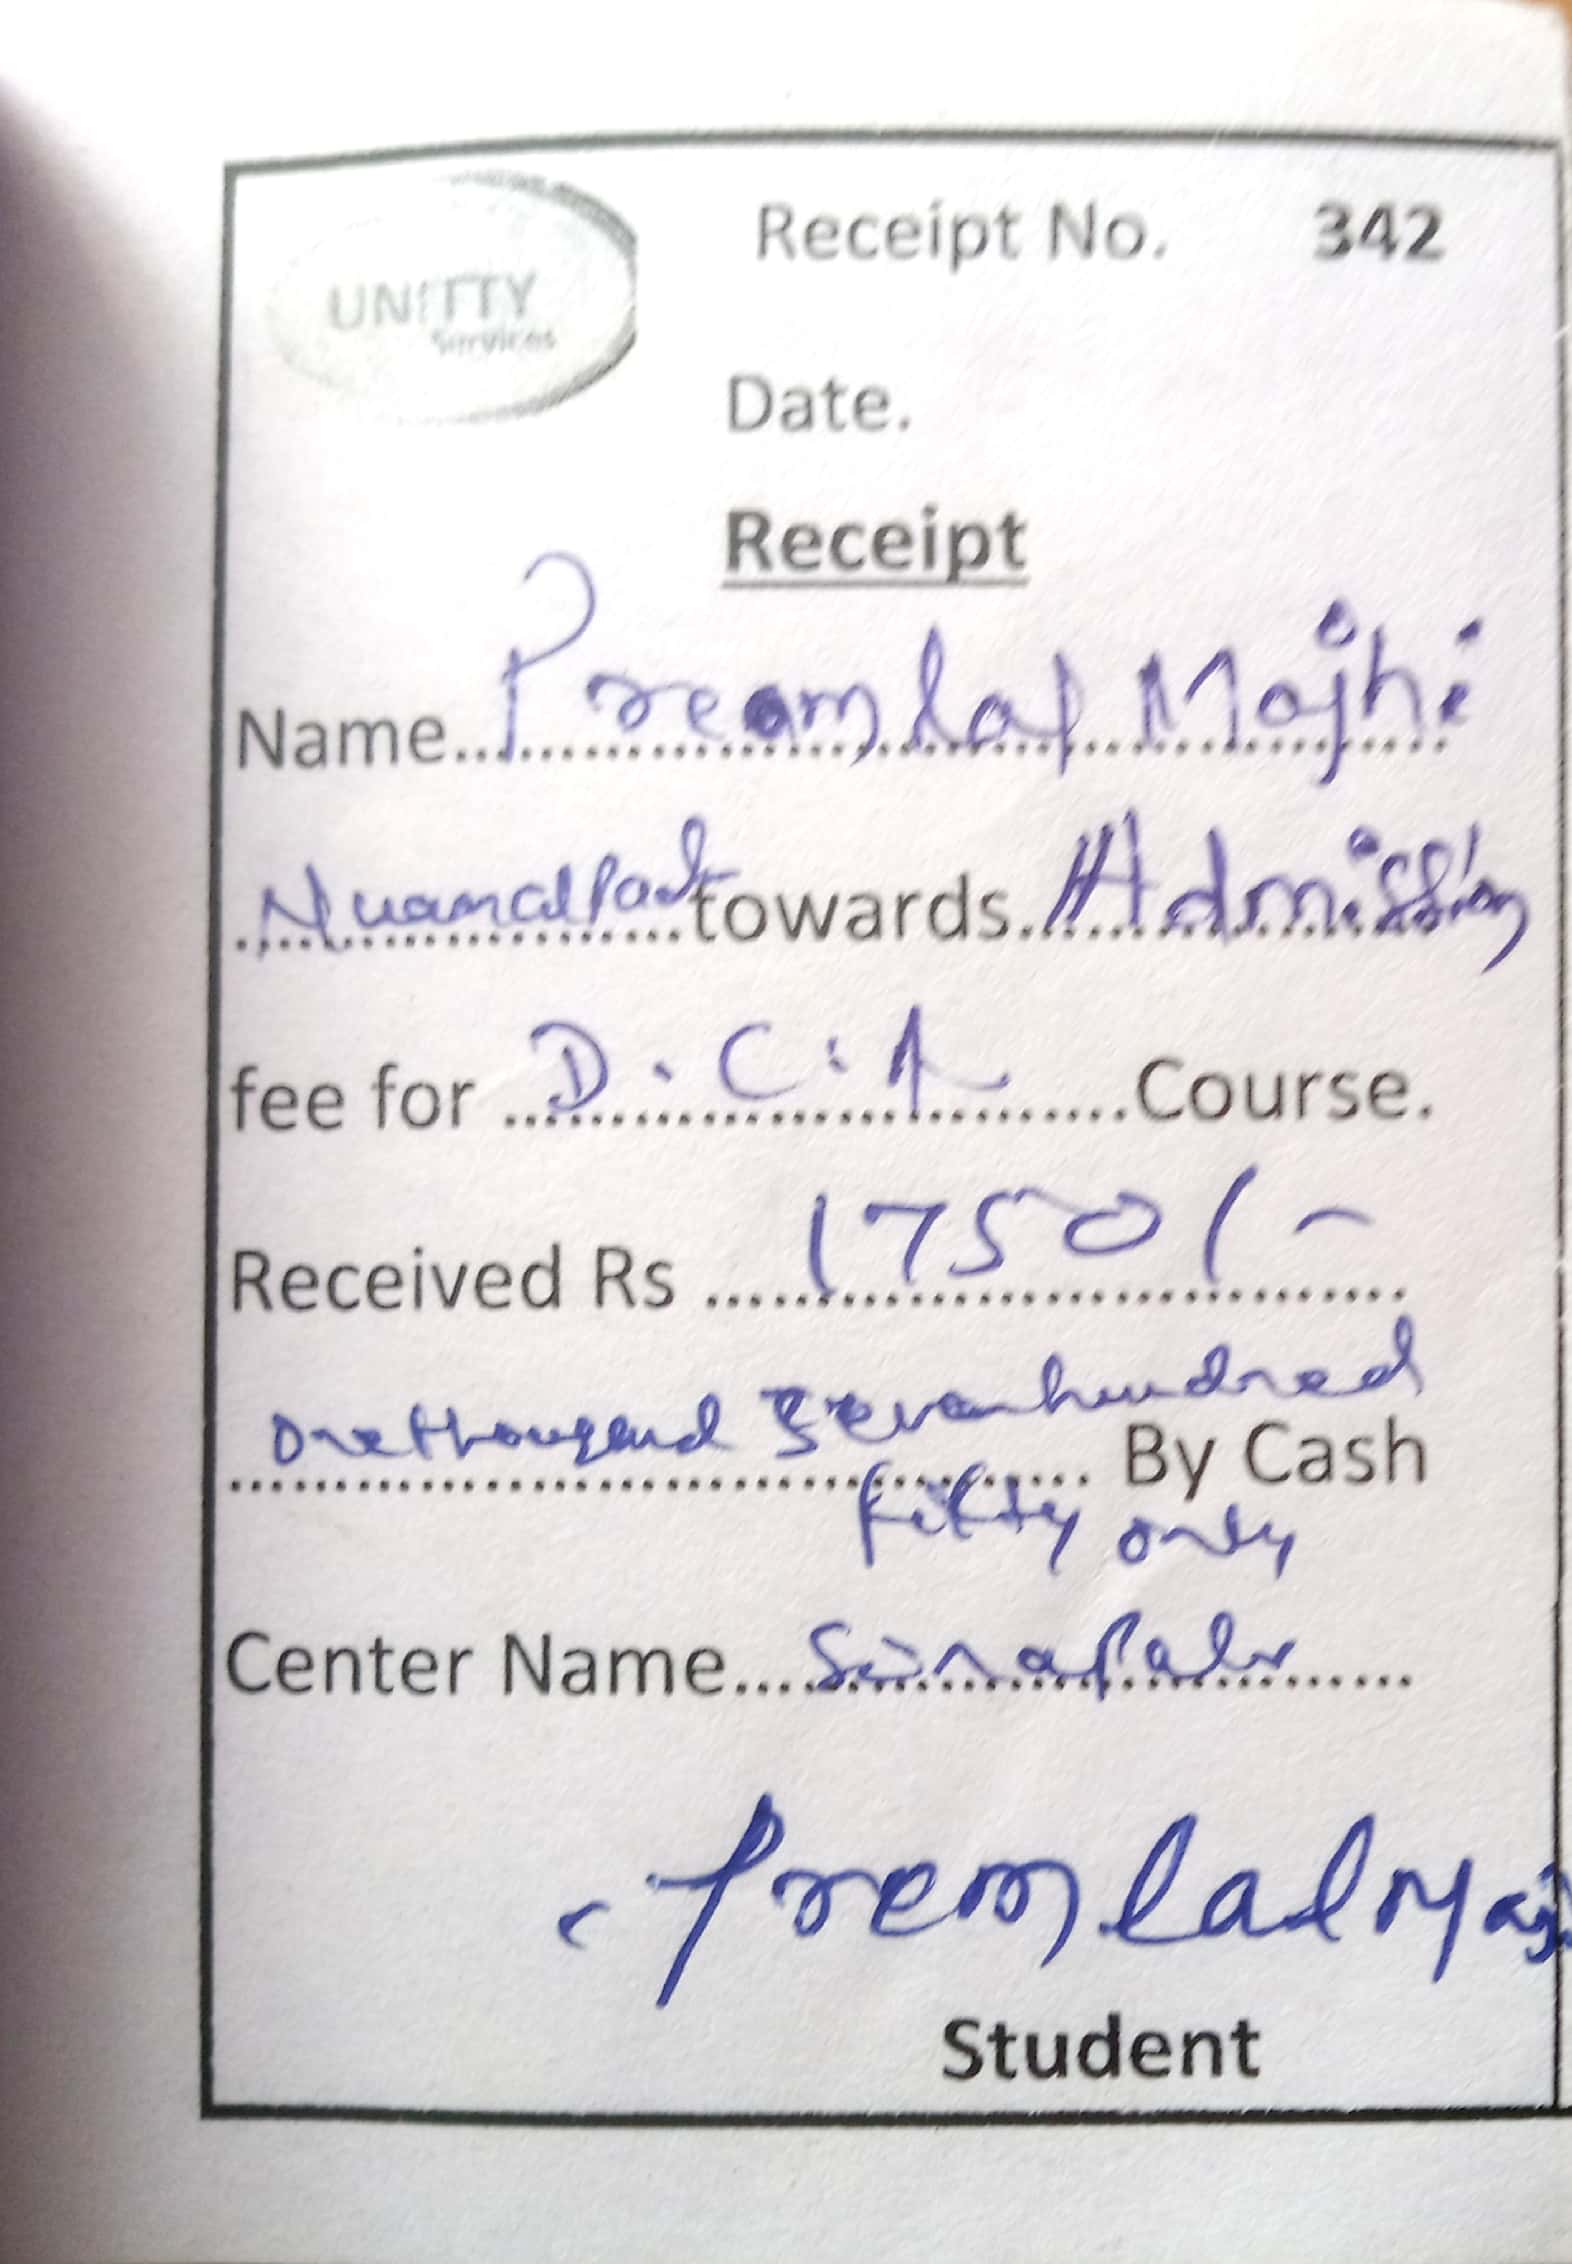 UNITTY
Services
Receipt No. 342
Date.
Receipt
Name Premlal Majhi
towards Admission
fee for D.C.A Course.
Received Rs 1750/-
One thousand Seven hundred
By Cash
fifty only
Center Name Sinapali
Premlal Maj
Student